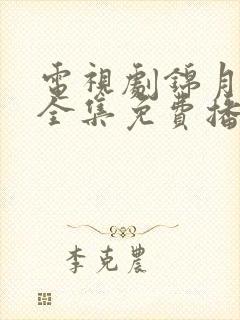 電視劇錦月
全集免費播
李克農